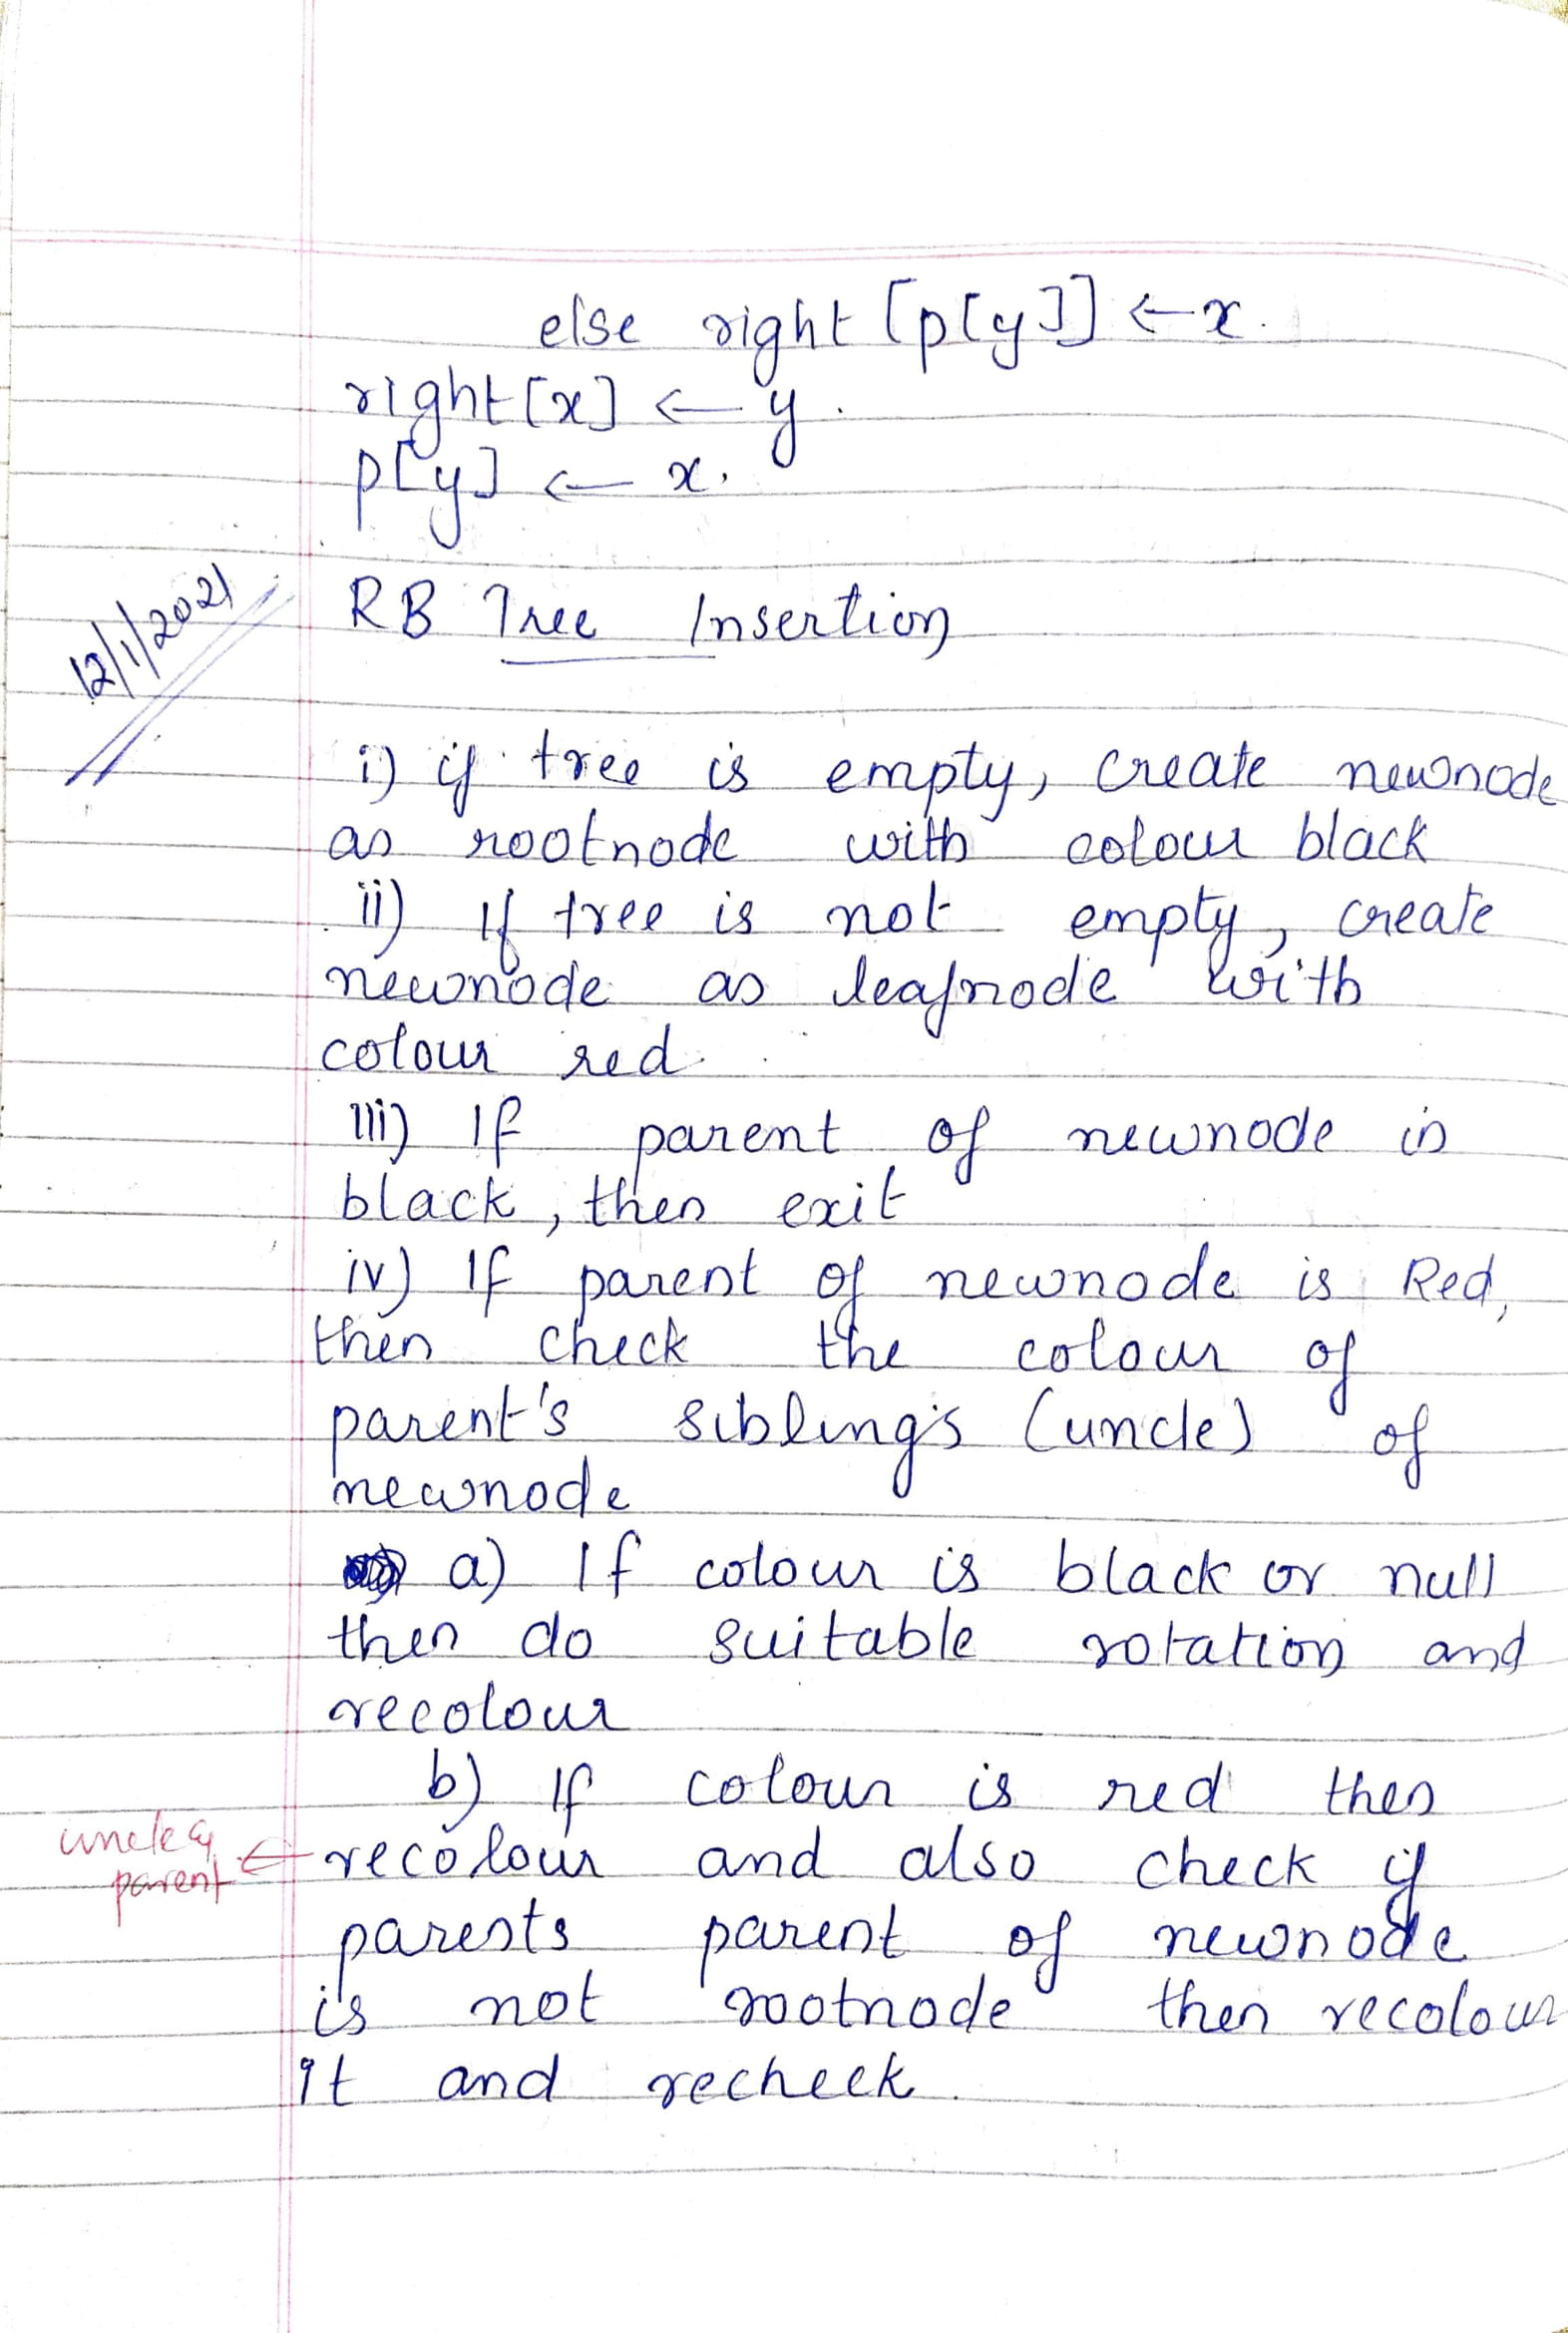 else right [p[y]] ← x.
right[x] ← y.
p[y] ← x.
12/1/2021
RB Tree Insertion
i) if tree is empty, create newnode
as rootnode with colour black
ii) If tree is not empty, create
newnode as leafnode with
colour red
iii) If parent of newnode is
black, then exit
iv) If parent of newnode is Red,
then check the colour of
parent's sibling's (uncle) of
newnode
a) If colour is black or null
then do suitable rotation and
recolour
b) If colour is red then
uncle &
parent ← recolour and also check if
parents parent of newnode
is not rootnode then recolour
it and recheck.